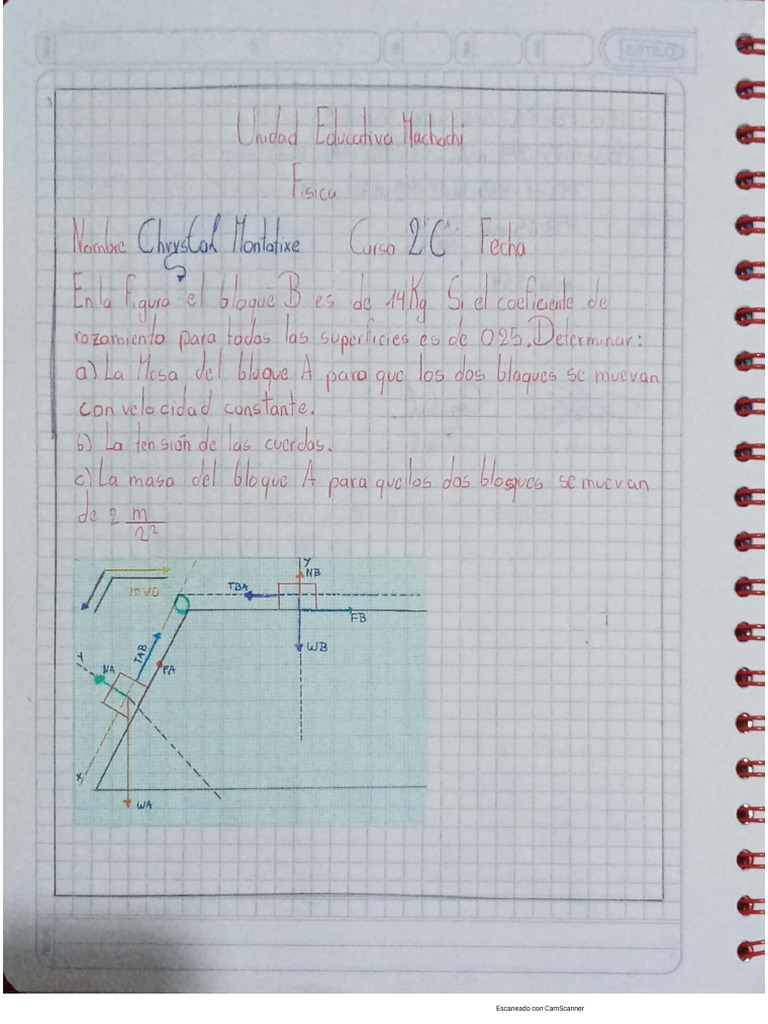 ESTILO
Unidad Educativa Machachi
Fisica
Nombre Chrystal Montatixe Curso 2"C" Fecha
En la figura el bloque B es de 14Kg Si el coeficiente de
rozamiento para todas las superficies es de 025. Determinar:
a) La Masa del bloque A para que los dos bloques se muevan
con velocidad constante.
b) La tensión de las cuerdas.
c) La masa del bloque A para que los dos bloques se muevan
de 2 m/2²
Y
NB
TBA
FB
WB
TAB
Y
NA
FA
X
WA
Escaneado con CamScanner